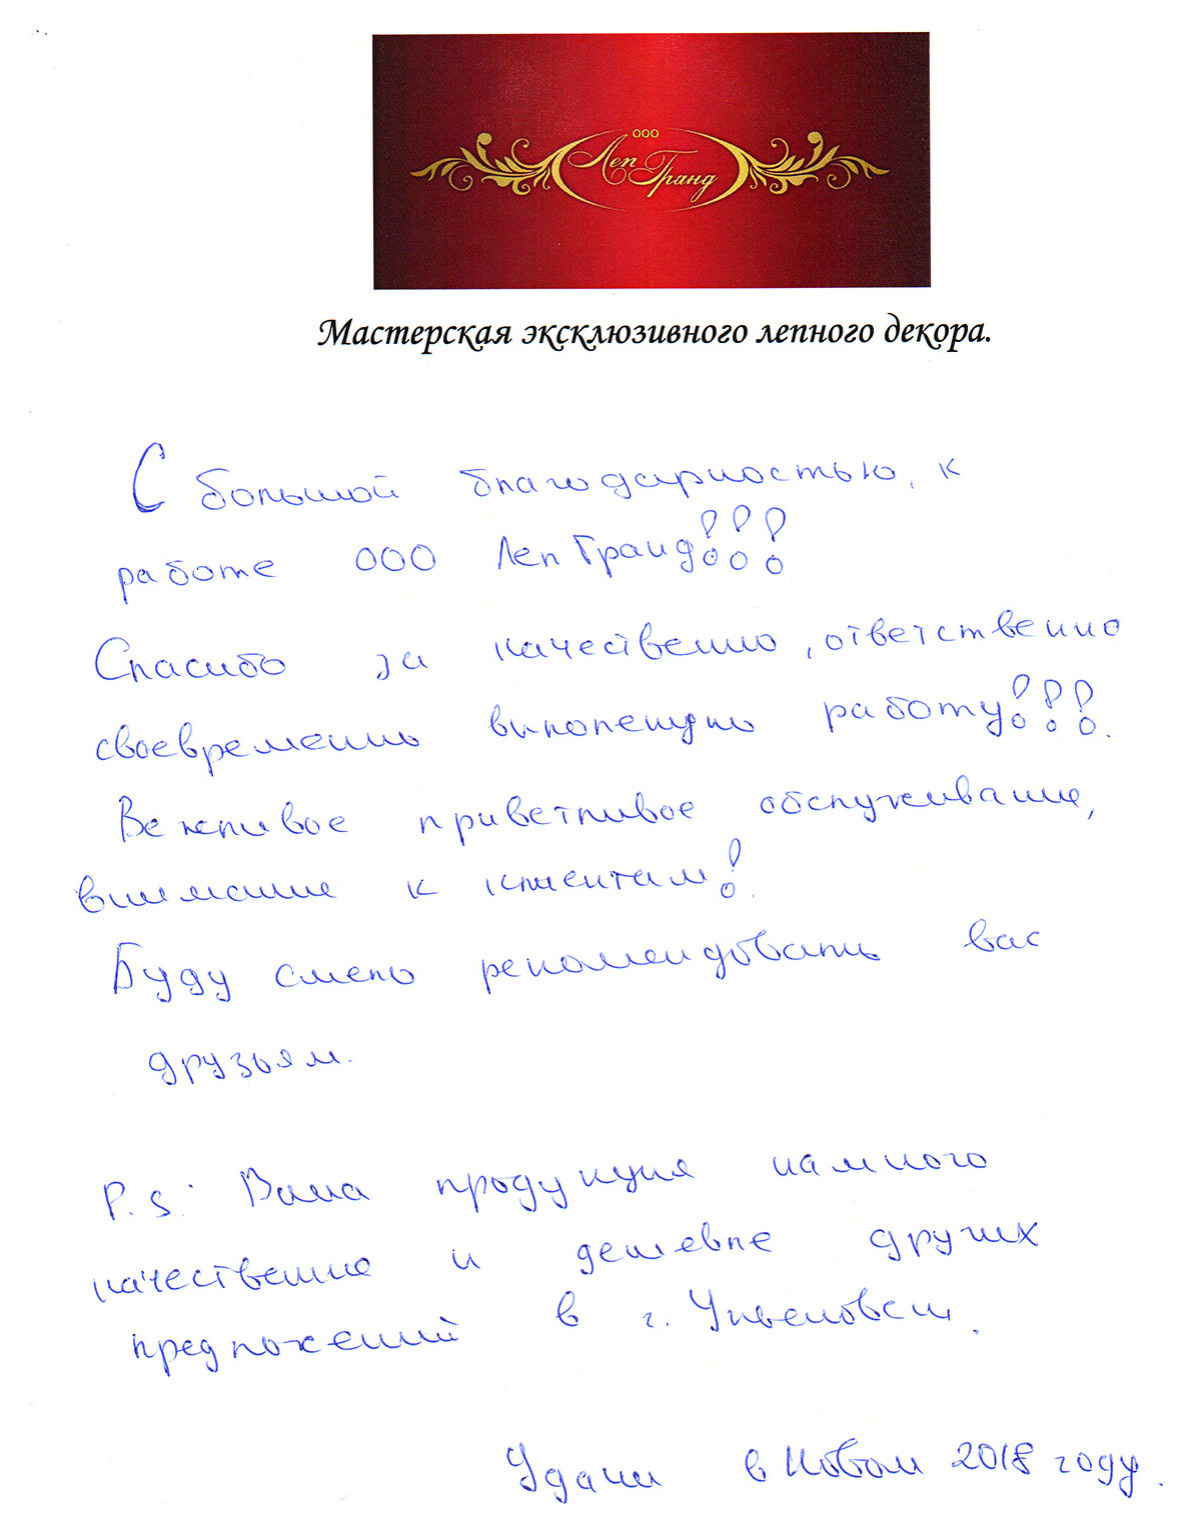 ООО
Леп Гранд
Мастерская эксклюзивного лепного декора.
С большой благодарностью, к
работе ООО ЛепГранд!!!
Спасибо за качественно, ответственно
своевременно выполенную работу!!!.
Вежливое приветливое обслуживание,
внимание к клиентам!.
Буду смело рекомендовать вас
друзьям.
P.S: Ваша продукция намного
качественне и дешевле других
предложений в г. Ульяновск.
Удачи в Новом 2018 году.